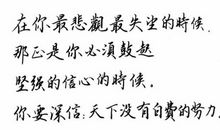 在你最悲觀最失望的時候，
那正是你必須鼓起
堅强的信心的時候。
你要深信：天下没有白費的努力